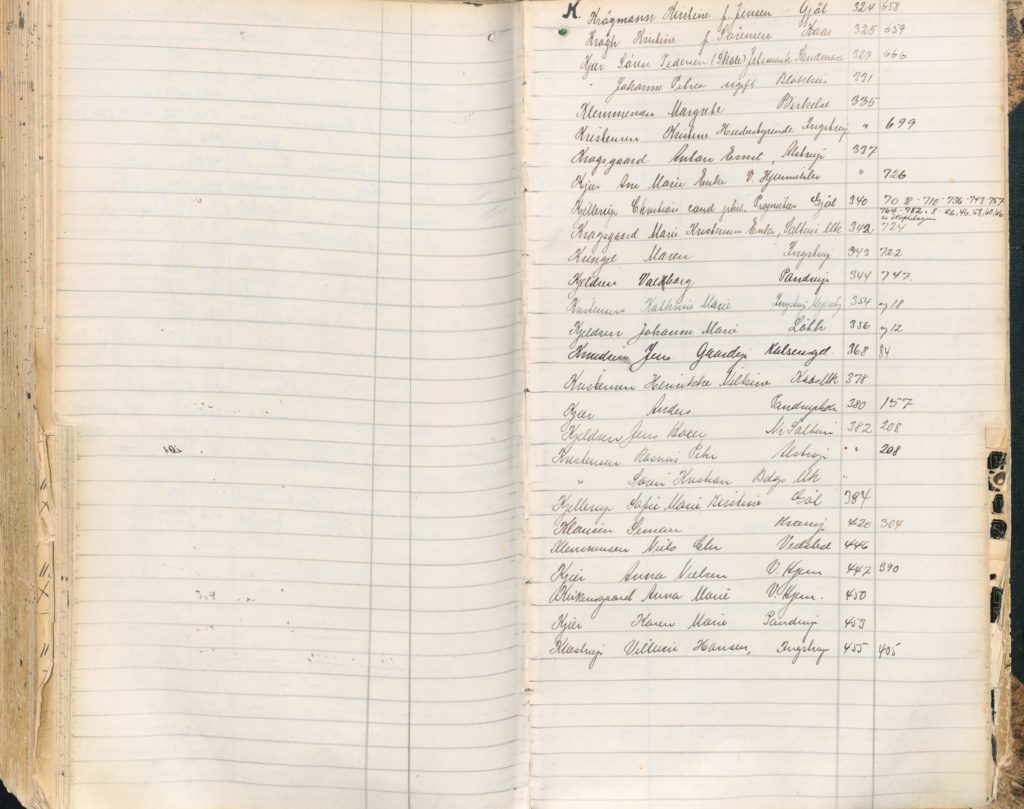 K.
Krögmann Kirstine f. Jensen Gjöl 324 658
Krogh Kirstine f. Sörensen Kaas 325 659
Kjær Sören Pedersen Jetsmark 327 666
" Johanne Petrea ugift Blokhus 331
Klemmensen Margrete Birkelse 335
Kristensen Kristine Husbestyrende Ingstrup " 699
Kragsgaard Anton Ernst, Alstrup 337
Kjær Ane Marie Enke V. Hjermitslev " 726
Kjellerup Christian cand. phil. Proprietær Gjöl 340 708 - 710 - 736 - 743 757
764 - 782 - 8 - 26, 46, 58, 60, 66
Kragsgaard Marie Kristensen Enke, Saltum 342 724
Kringel Maren Ingstrup 343 722
Kjeldsen Valdborg Pandrup 344 747
Kristensen Kathrine Marie Ingstrup 354 og 18
Kjeldsen Johanne Marie 356 og 12
Knudsen Jens Gaardejer 368 84
Kristensen Henrikke Vilhine Kaas Mk 378
Kjær Anders Pandrup 380 157
Kjeldsen Jens Nr Saltum 382 208
Kristensen Rasmus Peter Alstrup " 208
" Sören Kristian Mk "
Kjellerup Sofie Marie Kirstine Gjöl 384
Klausen Simon 420 304
Klemmensen Niels Chr Vedsted 446
Kjær Anna Nielsen V. Hjerm 447 390
Anna Marie V. Hjerm. 450
Kjær Karen Marie Pandrup 453
Klæstrup Villum Hansen, Ingstrup 455 405